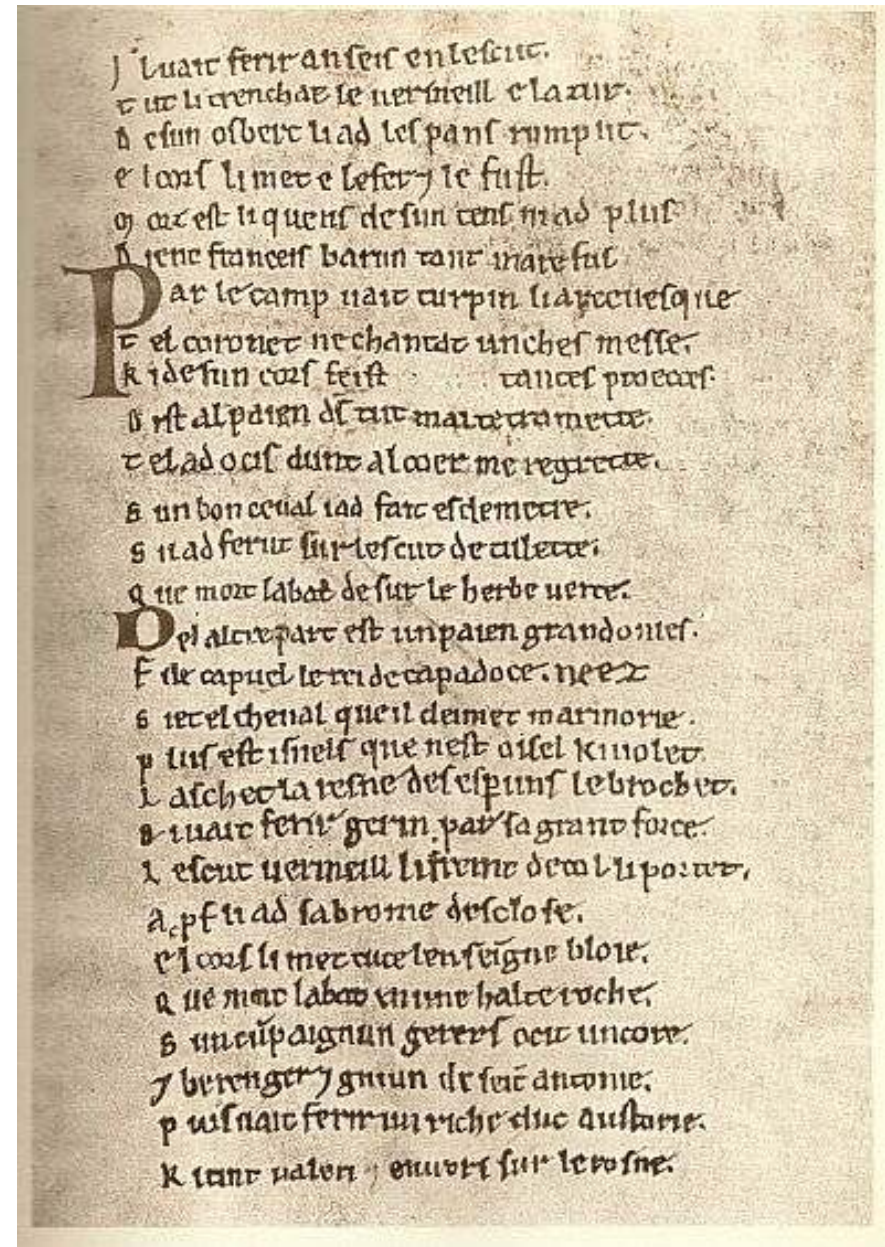 I l uait ferir anseis en lescut.
T ut li trenchat le uermeill e lazur.
D e sun osberc li ad les pans rumput.
E l cors li met e le fer ⁊ le fust.
M orz est li quens de sun tens ni ad plus
D ient franceis barun tant mare fus
Par le camp uait turpin li arceuesque
T el coronet ne chantat unches messe.
K i de sun cors feist tantes proecces.
D ist al paien ds tut mal te tramette.
T el ad ocis dunt al coer me regrette.
S un bon ceual i ad fait esdemetre.
S i lad ferut sur lescut de tulette.
Q ue mort labat desur le herbe uerte.
De laltre part est un paien grandonies.
F de capuel le rei de capadoce. neez
S iet el cheual que il cleimet marmorie.
P lus est isnels que nest oisel ki uolet
L aschet la resne des espuns le brochet.
S i uait ferir gerin par sa grant force.
L escut uermeill li freint de col li portet.
A pres li ad sa bronie desclose.
E l cors li met tute lenseigne bloie.
Q ue mort labat en une halte roche.
S un cumpaignun gerers ocit uncore.
⁊ berenger ⁊ guiun de seint antonie.
P uis uait ferir un riche duc austorie.
K i tint ualeri ⁊ enuers sur le rosne.